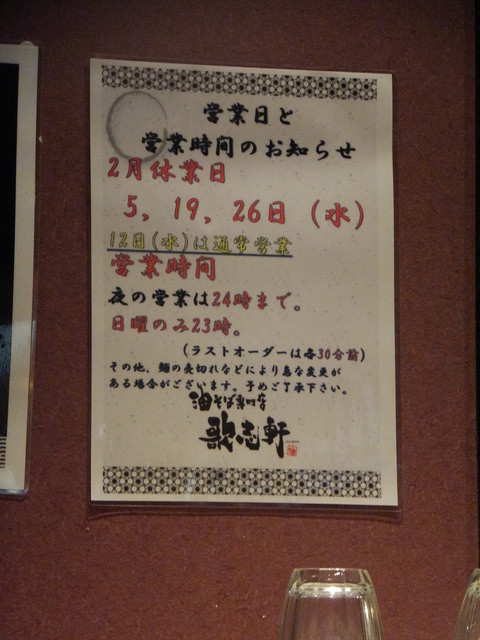 営業日と
営業時間のお知らせ
2月休業日
5, 19, 26日 (水)
12日(水)は通常営業
営業時間
夜の営業は24時まで。
日曜のみ23時。
(ラストオーダーは各30分前)
その他、麺の売切れなどにより急な変更が
ある場合がございます。予めご了承下さい。
油そば専門店
歌志軒